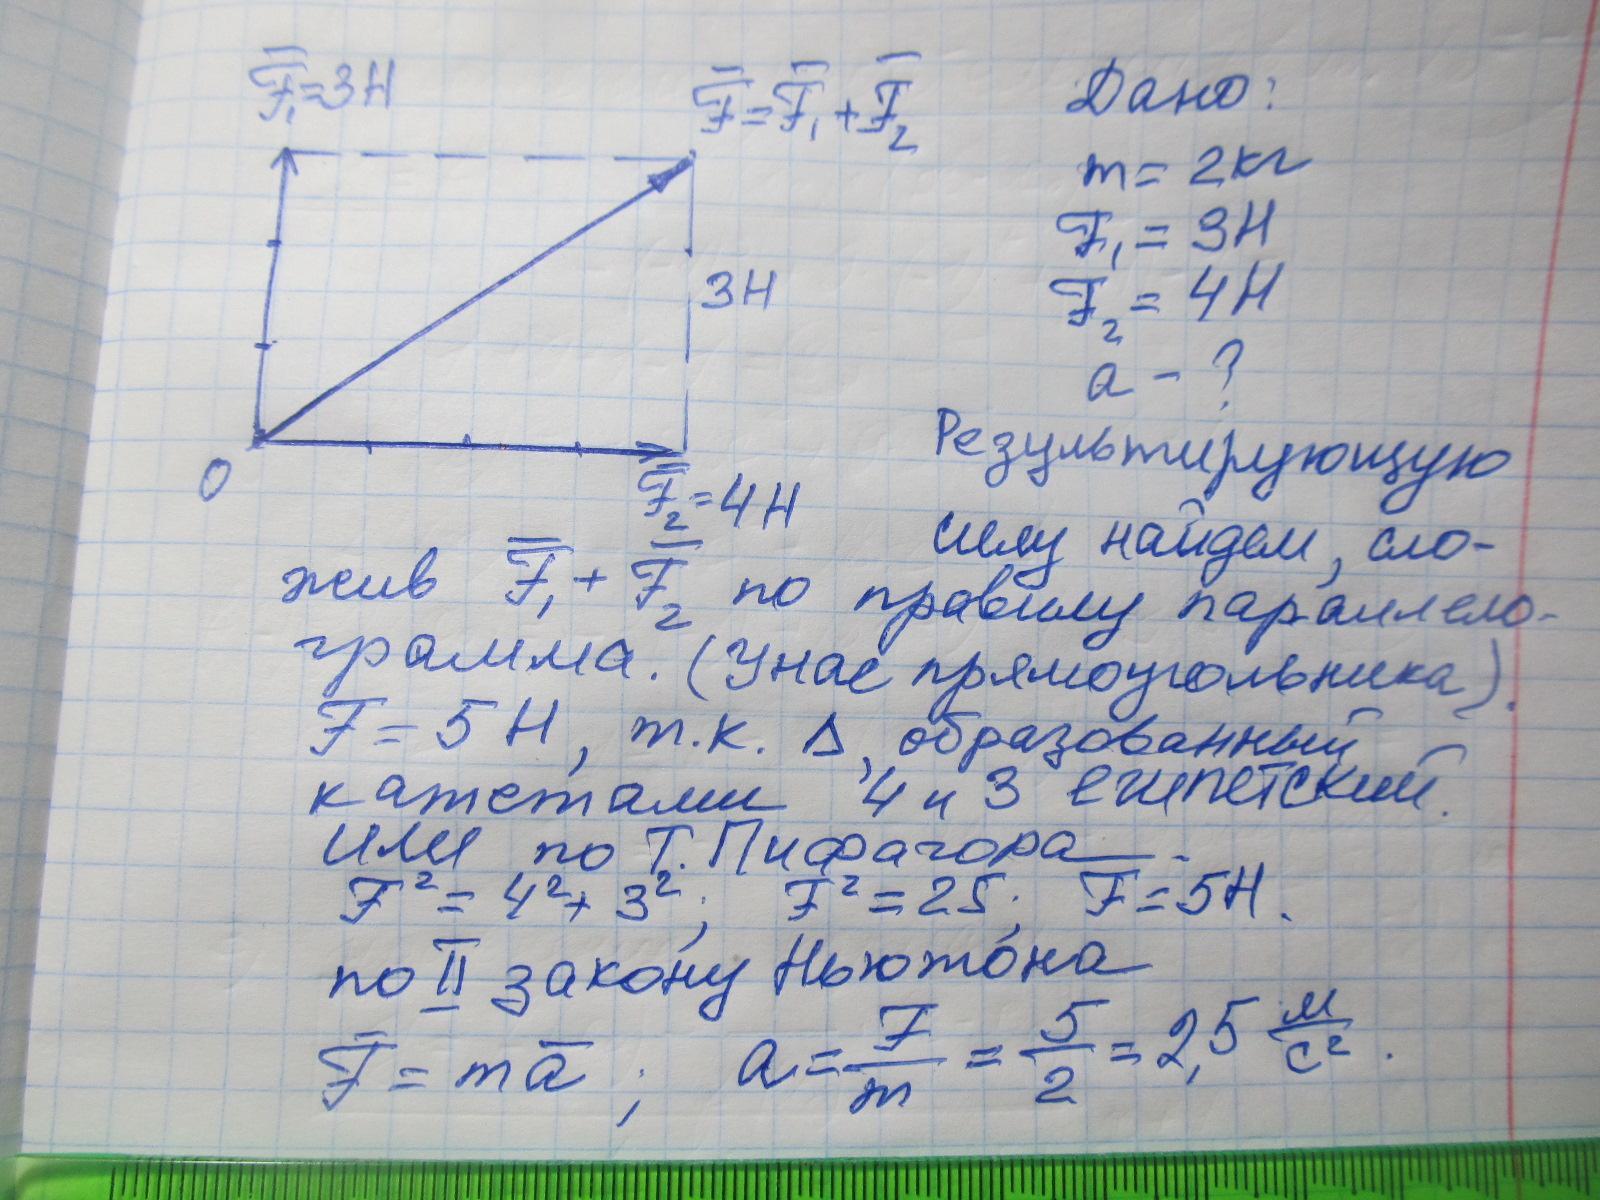 F̅₁=3Н
F̅=F̅₁+F̅₂
3Н
О
F̅₂=4Н
Дано:
m= 2кг
F₁= 3Н
F₂= 4Н
a - ?
Результирующую
силу найдем, сло-
жив F̅₁+ F̅₂ по правилу параллело-
грамма. (У нас прямоугольника).
F= 5Н, т.к. Δ, образованный
катетами 4 и 3 египетский.
или по Т. Пифагора
F²= 4²+ 3²; F²=25; F=5Н.
по II закону Ньютона
F̅= ma̅; a= F/m = 5/2 = 2,5 м/с².